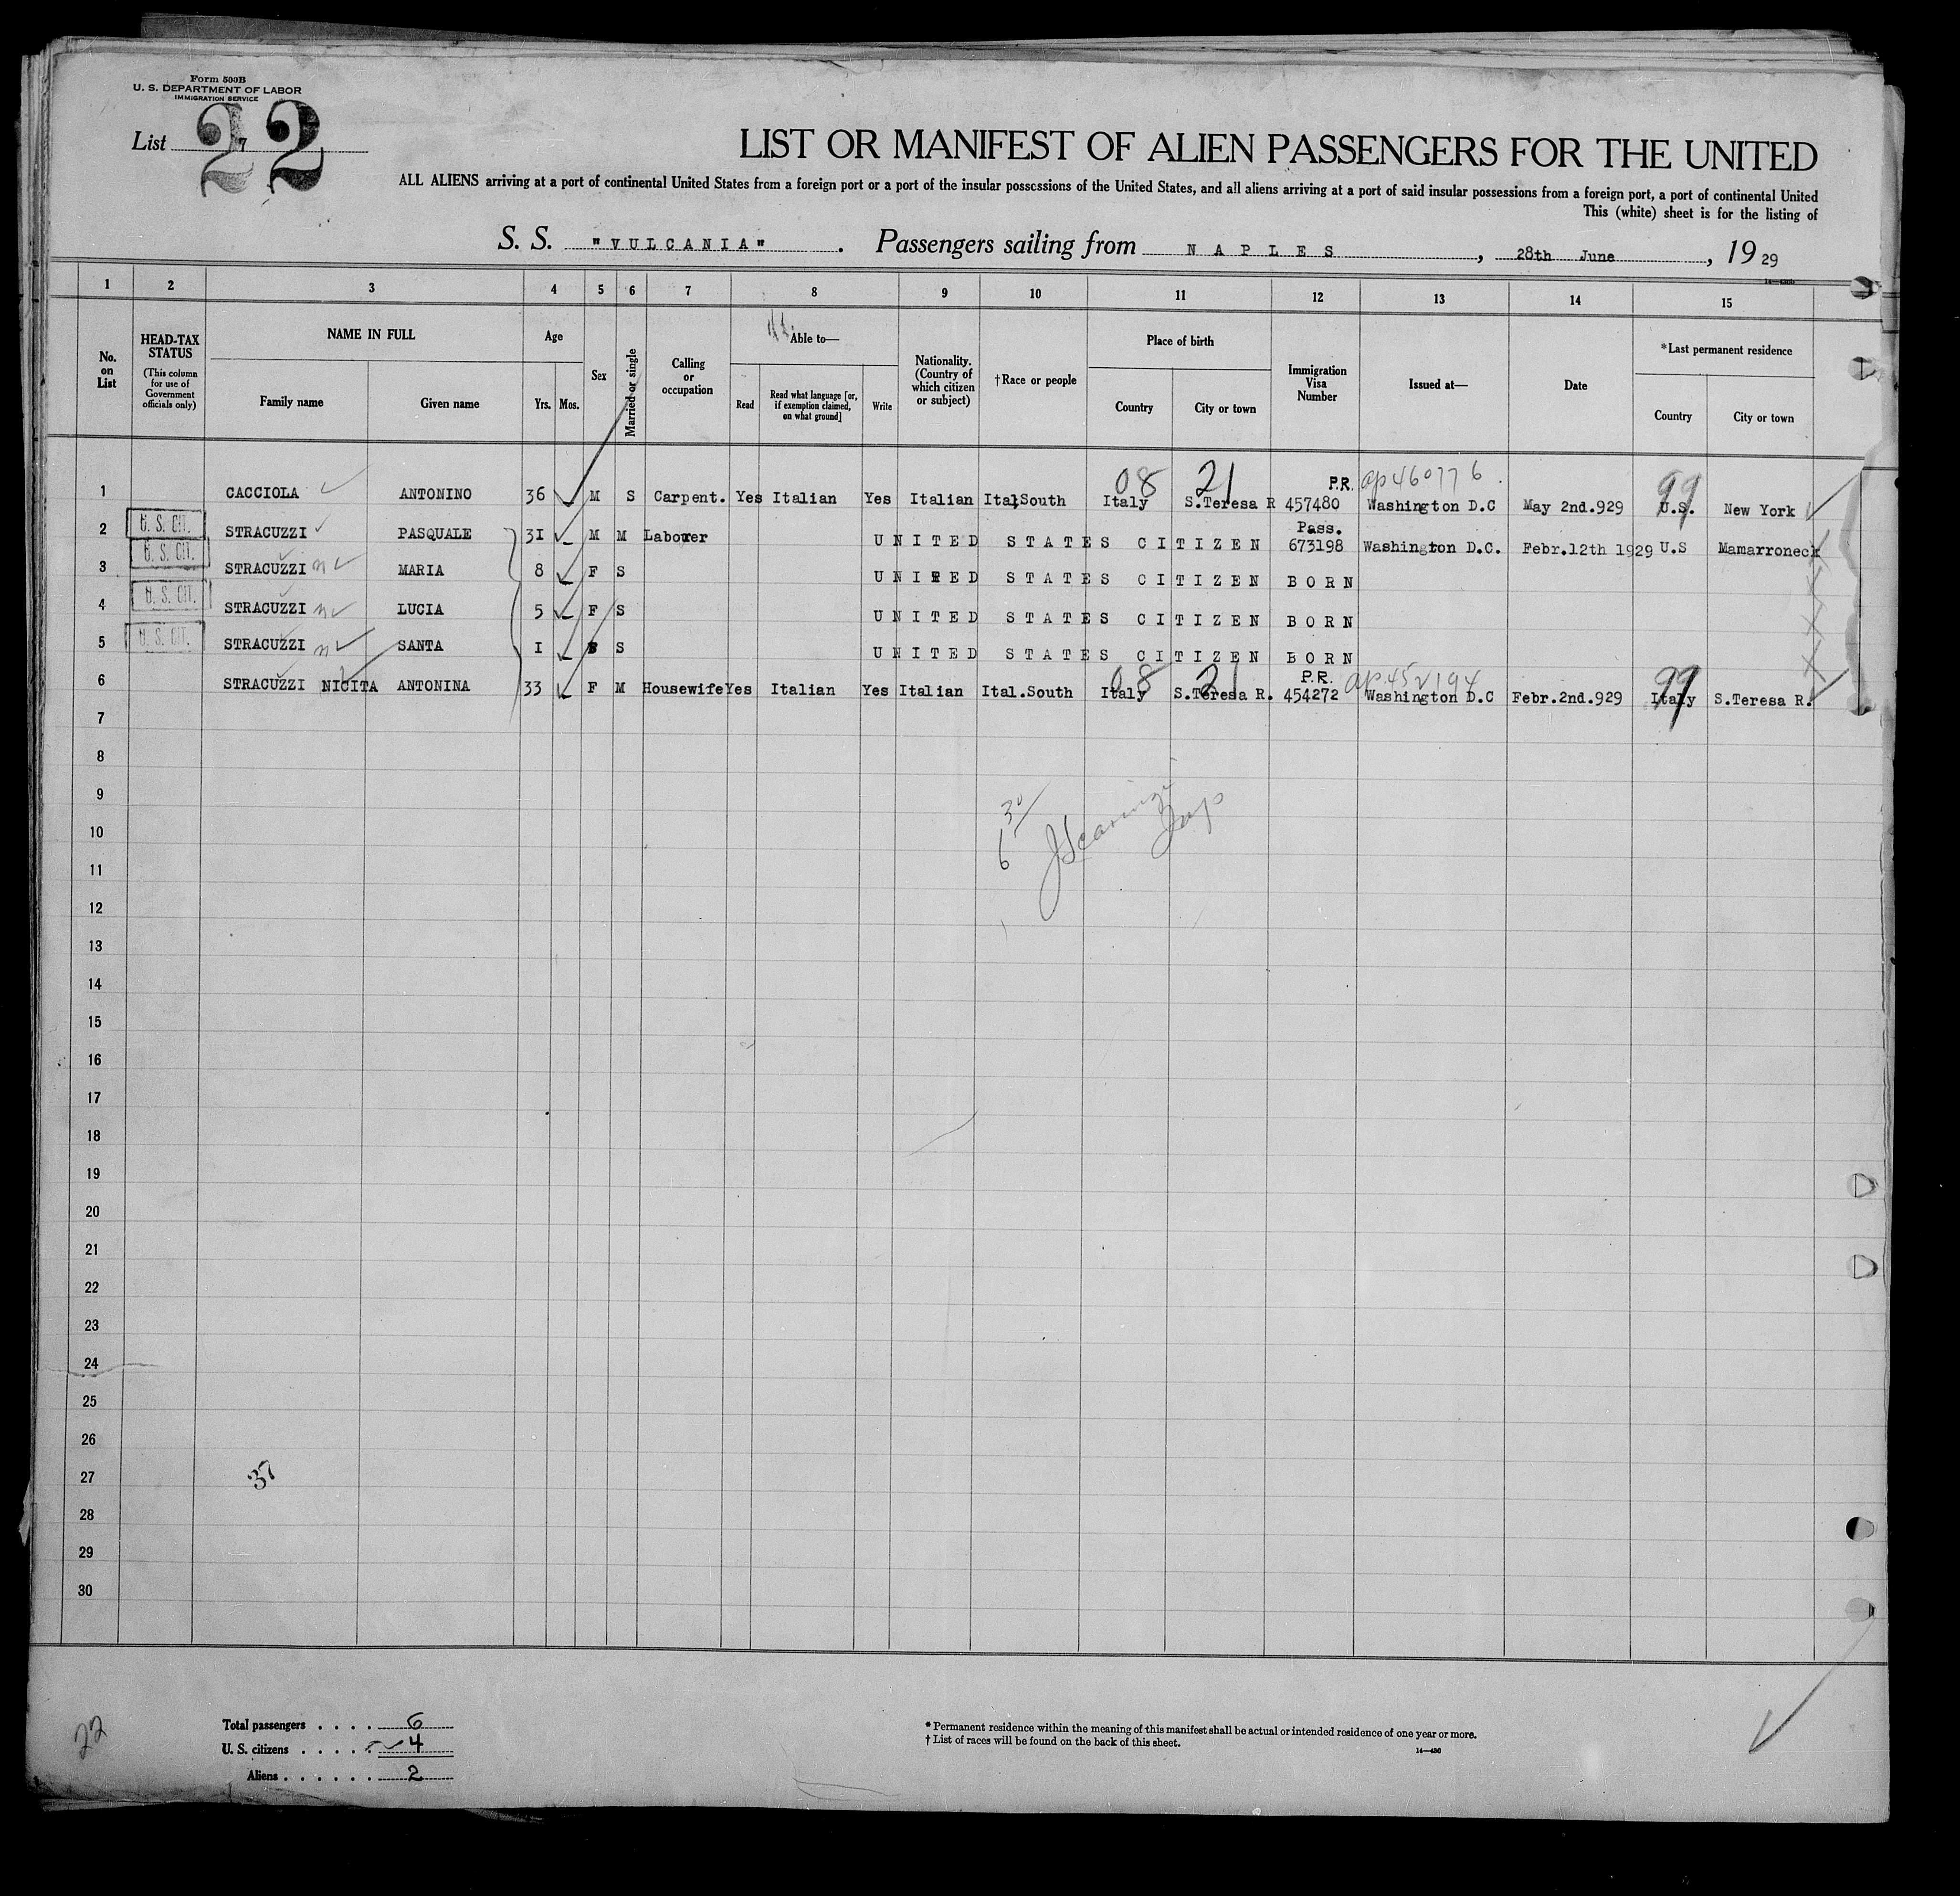 Form 500B
U. S. DEPARTMENT OF LABOR
IMMIGRATION SERVICE
List 22
LIST OR MANIFEST OF ALIEN PASSENGERS FOR THE UNITED
ALL ALIENS arriving at a port of continental United States from a foreign port or a port of the insular possessions of the United States, and all aliens arriving at a port of said insular possessions from a foreign port, a port of continental United
This (white) sheet is for the listing of
S. S. "VULCANIA" . Passengers sailing from NAPLES , 28th June , 19 29
14—430b
1 2 3 4 5 6 7 8 9 10 11 12 13 14 15
No. on List
HEAD-TAX STATUS
(This column for use of Government officials only)
NAME IN FULL
Family name Given name
Age
Yrs. Mos.
Sex
Married or single
Calling or occupation
Able to—
Read
Read what language [or, if exemption claimed, on what ground]
Write
Nationality. (Country of which citizen or subject)
†Race or people
Place of birth
Country City or town
Immigration Visa Number
Issued at—
Date
*Last permanent residence
Country City or town
08 21 P.R. ap460776 99
1 CACCIOLA ANTONINO 36 M S Carpent. Yes Italian Yes Italian Ital,South Italy S.Teresa R 457480 Washington D.C May 2nd.929 U.S. New York
Pass.
2 U. S. CIT. STRACUZZI PASQUALE 31 M M Labourer UNITED STATES CITIZEN 673198 Washington D.C. Febr.12th 1929 U.S Mamarroneck
3 U. S. CIT. STRACUZZI MARIA 8 F S UNITED STATES CITIZEN BORN
4 U. S. CIT. STRACUZZI LUCIA 5 F S UNITED STATES CITIZEN BORN
5 U. S. CIT. STRACUZZI SANTA I S UNITED STATES CITIZEN BORN
08 21 P.R. ap452194 99
6 STRACUZZI NICITA ANTONINA 33 F M Housewife Yes Italian Yes Italian Ital.South Italy S.Teresa R. 454272 Washington D.C Febr.2nd.929 Italy S.Teresa R.
7
8
9
10
11
12
13
14
15
16
17
18
19
20
21
22
23
24
25
26
27
37
28
29
30
22
Total passengers . . . . 6
U. S. citizens . . . . . 4
Aliens . . . . . . 2
* Permanent residence within the meaning of this manifest shall be actual or intended residence of one year or more.
† List of races will be found on the back of this sheet.
14—430